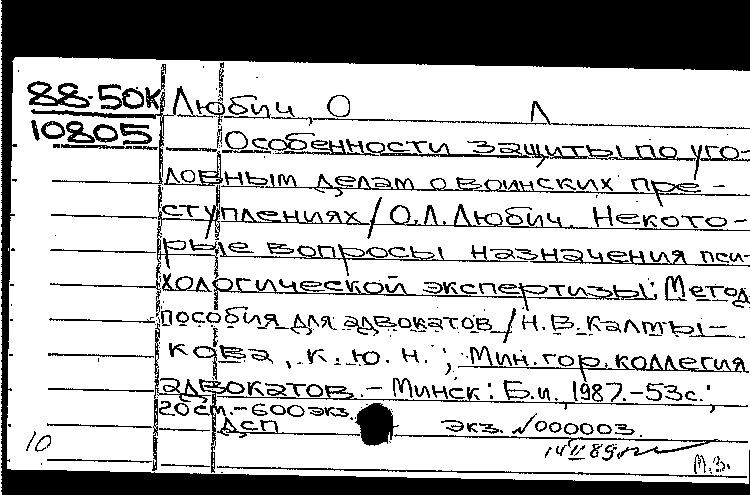 88-50К Любич, О Л
10805 Особенности защиты по уго-
ловным делам о воинских пре-
ступлениях/О.Л.Любич. Некото-
рые вопросы назначения пси-
хологической экспертизы: Метод
пособия для адвокатов/Н.В.Калты-
кова, К.Ю.Н.; Мин.гор.коллегия
адвокатов.-Минск: Б.и., 1987.-53с.;
20см.-600экз.
ДСП экз. №000003.
10 14 II 89
М.З.